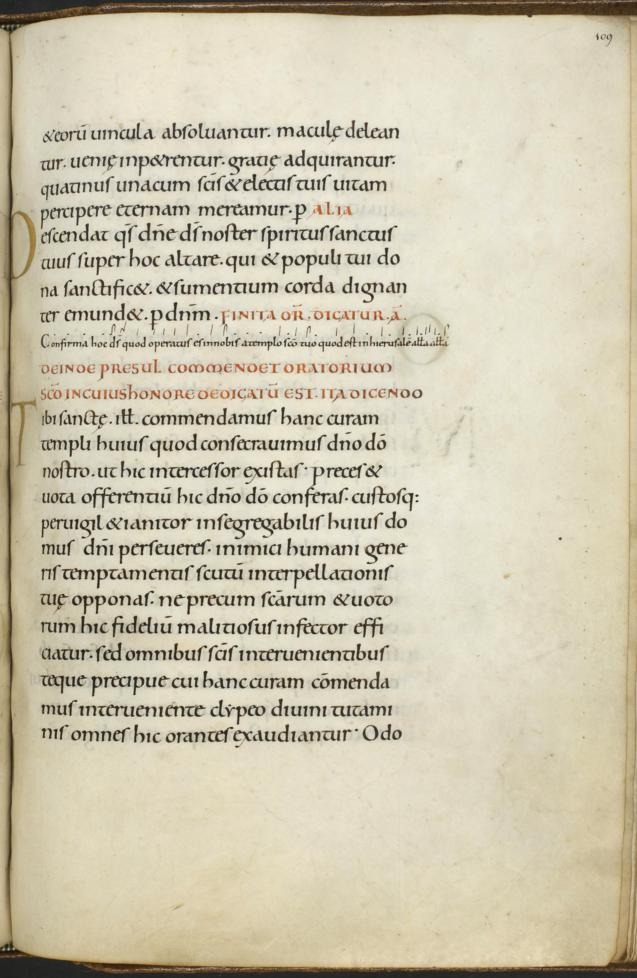 109
&eorū uincula absoluantur. maculę delean
tur. uenię inp&rentur. gratię adquirantur.
quatinus unacum sc̄is & electis tuis uitam
percipere eternam mereamur. p̲ ALIA
Descendat qs̄ dn̄e ds̄ noster spiritus sanctus
tuus super hoc altare. qui & populi tui do
na sanctific&. & sumentium corda dignan
ter emund&. p̲ dn̄m. FINITA OR̄. DICATUR. A̅.
Confirma hoc ds̄ quod operatus es innobis atemplo sc̄o tuo quod est in hierusalē all̄a all̄a
DEINDE PRESUL COMMENDET ORATORIUM
SC̄O INCUIUSHONORE DEDICATŪ EST. ITA DICENDO
Tibi sanctę. ill̄. commendamus hanc curam
templi huius quod consecrauimus dn̄o dō
nostro. ut hic intercessor existas. preces &
uota offerentiū hic dn̄o dō conferas. custosq:
peruigil & ianitor insegregabilis huius do
mus dn̄i perseueres. inimici humani gene
ris temptamentis scutū interpellationis
tuę opponas. ne precum sc̄arum & uoto
rum hic fideliū malitiosus infector effi
ciatur. sed omnibus sc̄is interuenientibus
teque precipue cui hanc curam cōmenda
mus interueniente clypeo diuini tutami
nis omnes hic orantes exaudiantur. Odo